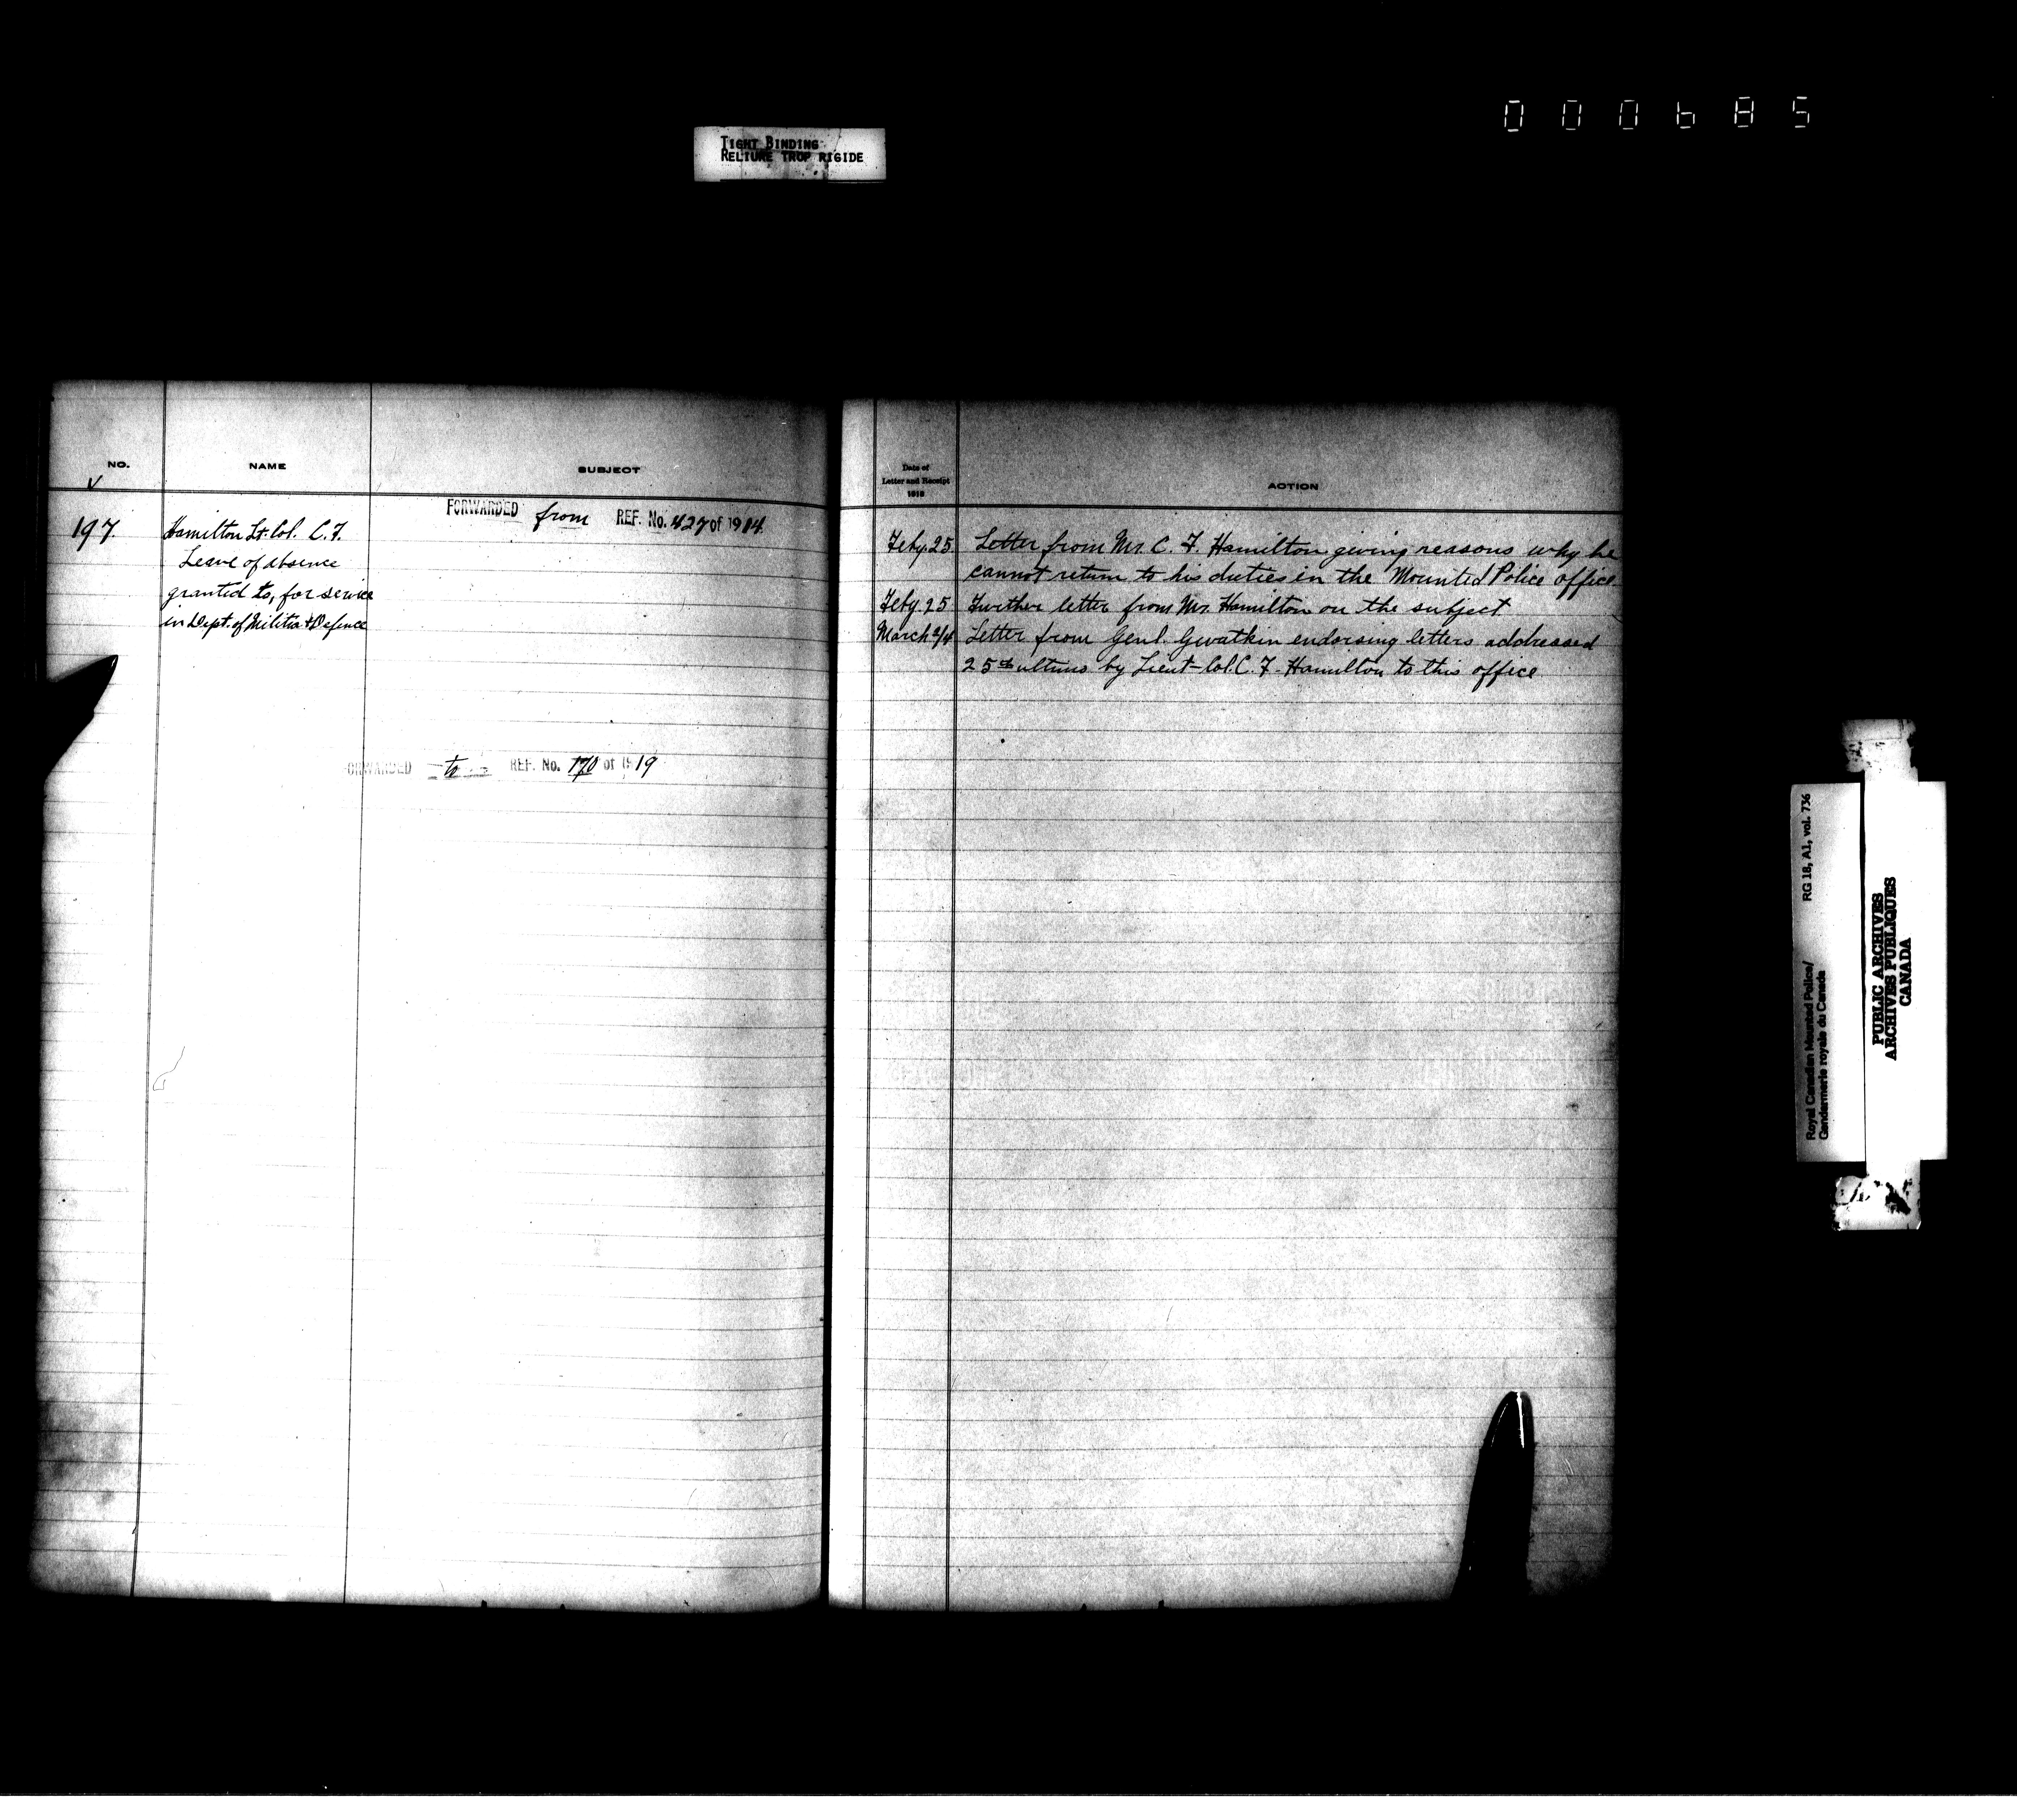 000685
TIGHT BINDING
RELIURE TROP RIGIDE
NO.
NAME
SUBJECT
FORWARDED from REF. No. 427 of 1914
197.
Hamilton Lt. Col. C. F.
Leave of absence
granted to, for service
in Dept. of Militia & Defence
FORWARDED to REF. No. 170 of 1919
Date of
Letter and Receipt
1918
ACTION
Feby. 25 Letter from Mr. C. F. Hamilton giving reasons why he
cannot return to his duties in the Mounted Police office.
Feby. 25 Further letter from Mr. Hamilton on the subject
March 2/4 Letter from Genl. Gwatkin endorsing letters addressed
25th ultimo by Lieut-Col. C. F. Hamilton to this office
Royal Canadian Mounted Police/ RG 18, A1, vol. 736
Gendarmerie royale du Canada
PUBLIC ARCHIVES
ARCHIVES PUBLIQUES
CANADA